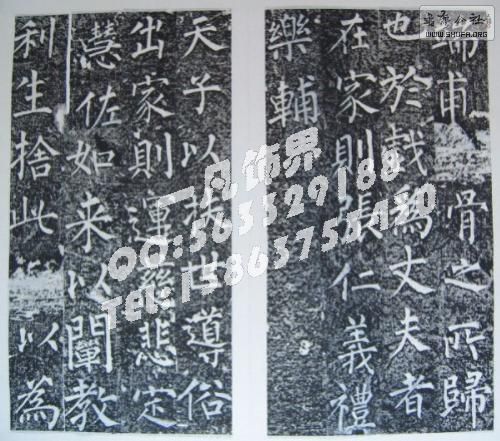 端甫 骨之所歸
也於戲爲丈夫者
在家則張仁義禮
樂輔
天子以扶世導俗
出家則運慈悲定
慧佐如来以闡教
利生捨此 以爲
一凡饰界
QQ:563329188
TEL:
WWW.SHUFA.ORG